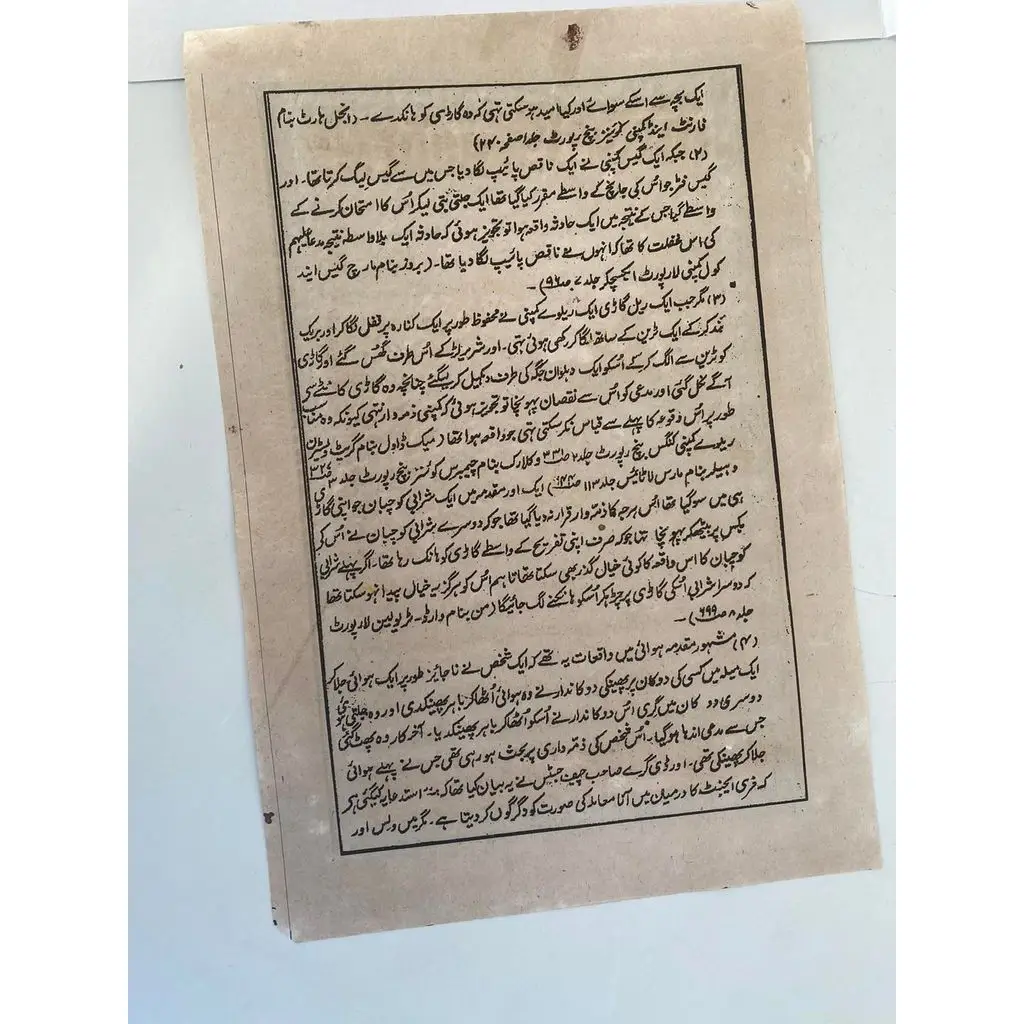 ایک بچہ سے اسکے سوائے اور کیا امید ہو سکتی تہی کہ وہ گاڑسی کو ہانکدے ۔ (انجل ہارٹ بنام
فارنٹ اینڈ کمپنی کوئینز بنچ رپورٹ جلد ا صفحہ ۲۴۰)
(۲) جبکہ ایک گیس کمپنی نے ایک ناقص پائپ لگا دیا جس میں سے گیس لیک کرتا تھا ۔ اور
گیس فٹر جو اُس کی جانچ کے واسطے مقرر کیا گیا تھا ایک جلتی بتی لیکر اُس کا امتحان کرنے کے
واسطے گیا جس کے نتیجہ میں ایک حادثہ واقعہ ہوا تو تجویز ہوئی کہ حادثہ ایک بلا واسطہ نتیجہ مدعا علیہم
کی اس غفلت کا تھا کہ انہوں نے ناقص پائیپ لگا دیا تھا ۔ (بروز بنام مارچ گیس اینڈ
کول کمپنی لا رپورٹ ایکسچکر جلد ۷ صـ ۹۶) ۔
(۳) مگر جب ایک ریل گاڑی ایک ریلوے کمپنی نے محفوظ طور پر ایک کنارہ پر قفل لگا کر اور بریک
بند کر کے ایک ٹرین کے ساتھ لگا کر رکھی ہوئی تہی ۔ اور شریر لڑکے اُس طرف گھس گئے اور گاڑی
کو ٹرین سے الگ کر کے اُسکو ایک ڈہلوان جگہ کی طرف دہکیل کر لیگئے چنانچہ وہ گاڑی کانٹے سے
آگے نکل گئی اور مدعی کو اُس سے نقصان پہونچا تو تجویز ہوئی کہ کمپنی ذمہ دار نتہی کیونکہ وہ مناسب
طور پر اُس وقوعہ کا پہلے سے قیاس نکر سکتی تہی جو واقعہ ہوا تھا (میک ڈاول بنام گریٹ ویسٹرن
ریلوے کمپنی کنگس بنچ رپورٹ جلد ۲ صـ ۳۳۱ و کلارک بنام چیمبرس کوئنز بنچ رپورٹ جلد ۳ صـ ۳۲۷
وہیلر بنام مارس لا ٹائمس جلد ۱۱۳ صـ ۶۴۴) ایک اور مقدمہ میں ایک شرابی کوچبان جو اپنی گاڑی
ہی میں سو گیا تھا اُس ہرجہ کا ذمہ وار قرار نہ دیا گیا تھا جو کہ دوسرے شرابی کوچبان نے اُس کے
بکس پر بیٹھکر پہونچا تھا جو کہ صرف اپنی تفریح کے واسطے گاڑی کو ہانک رہا تھا ۔ اگر پہلے شرابی
کوچبان کا اس واقعہ کا کوئی خیال گذر بھی سکتا تھا تاہم اُس کو ہرگز یہ خیال پیدا نہو سکتا تھا
کہ دوسرا شرابی اُسکی گاڑی پر چڑہکر اُسکو ہانکنے لگ جائیگا (من بنام وارڈ ۔ ٹریولین لا رپورٹ
جلد ۸ صـ ۶۹۹) ۔
(۴) مشہور مقدمہ ہوائی میں واقعات یہ تھے کہ ایک شخص نے ناجائز طور پر ایک ہوائی جلا کر
ایک میلہ میں کسی کی دوکان پر پھینکی دوکاندار نے وہ ہوائی اُٹھا کر باہر پھینکدی اور وہ جلتی ہوئی
دوسری دوکان میں گری اُس دوکاندار نے اُسکو اُٹھا کر باہر پھینکدیا ۔ آخر کار وہ پھٹ گئی
جس سے مدعی اندہا ہو گیا ۔ اُس شخص کی ذمہ داری پر بحث ہو رہی تھی جس نے پہلے ہوائی
جلا کر پھینکی تھی ۔ اور ڈی گرے صاحب چیف جسٹس نے یہ بیان کیا تھا کہ استدعا یہ کیگئی ہے
کہ فری ایجنٹ کا درمیان میں آنا معاملہ کی صورت کو دگرگوں کر دیتا ہے ۔ مگر میں ولس اور